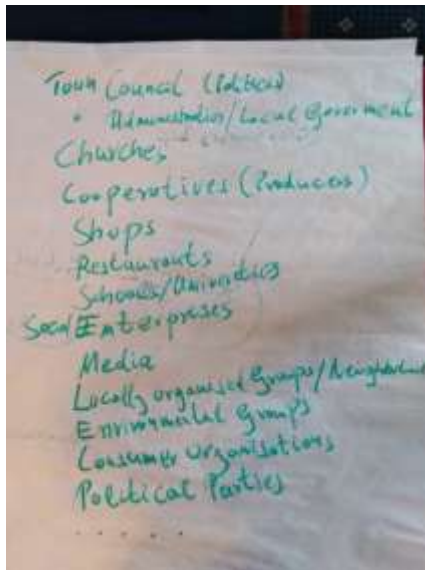 Town Council (Politics)
• Administration/Local Goverment
Churches
Cooperatives (Producers)
Shops
Restaurants
Schools/Universities
Social Enterprises
Media
Locally organised Groups/
Environmental Groups
Consumer Organisations
Political Parties
. . . . .